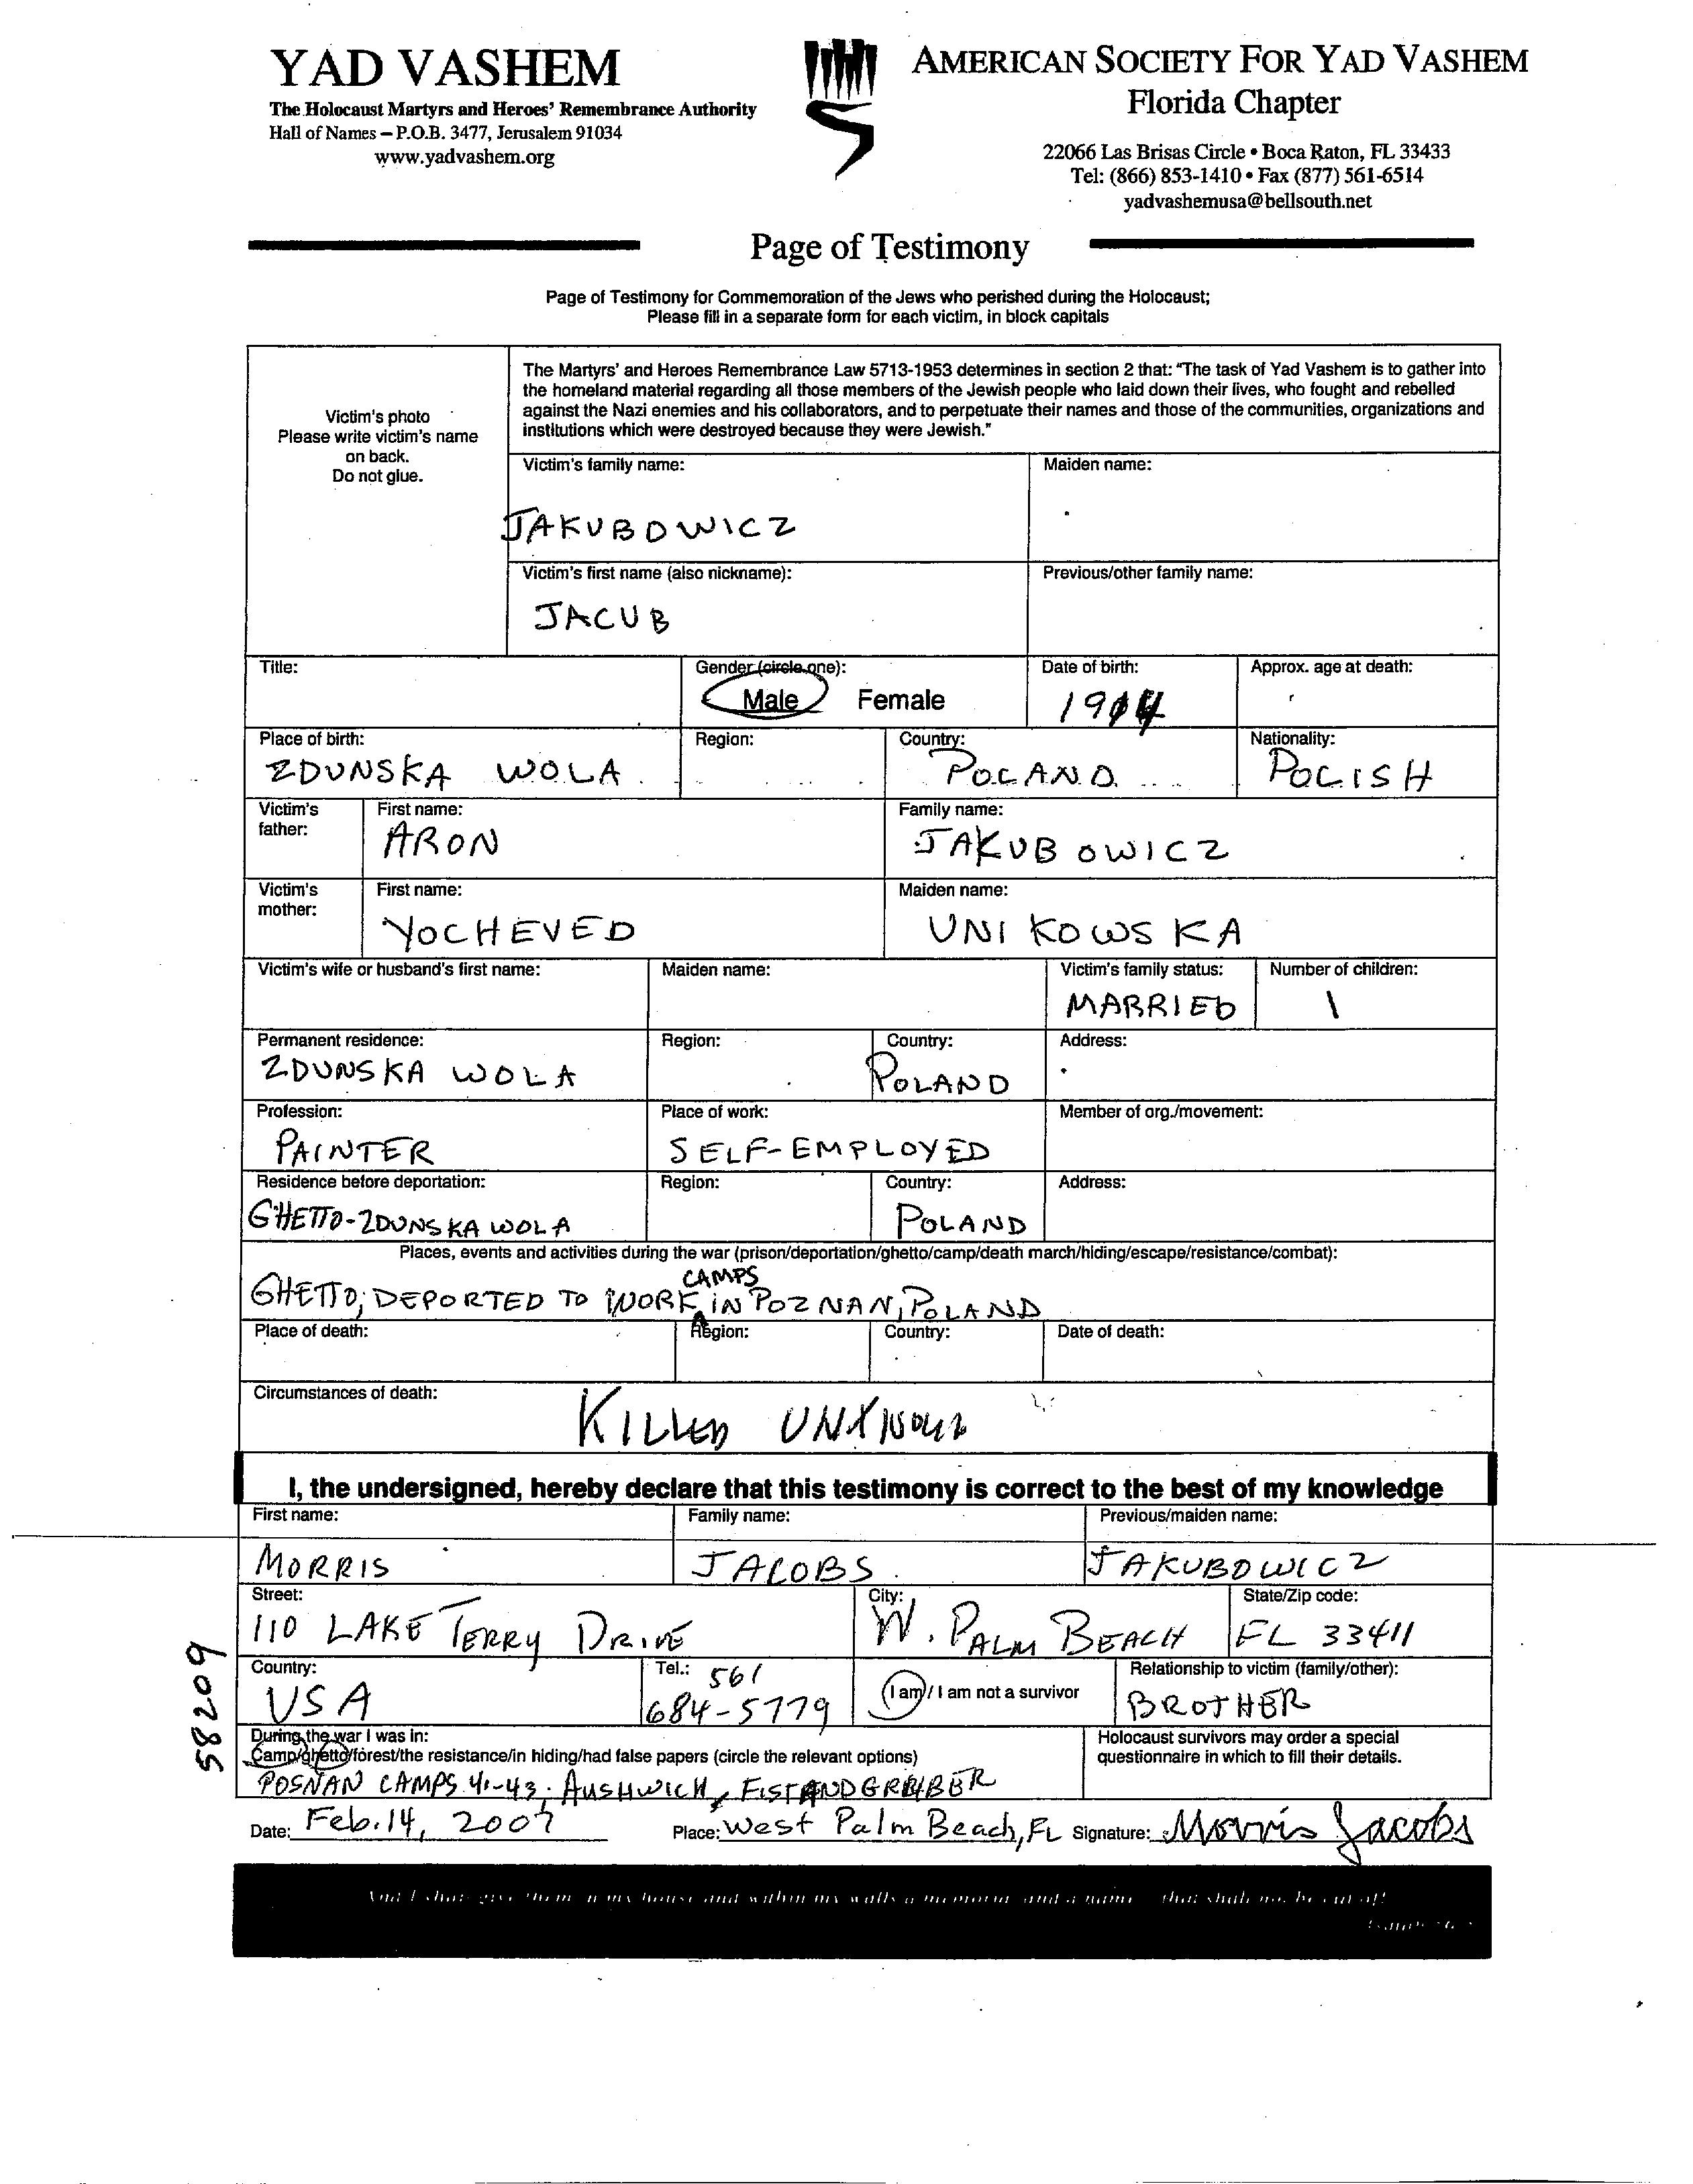 YAD VASHEM
The Holocaust Martyrs and Heroes' Remembrance Authority
Hall of Names – P.O.B. 3477, Jerusalem 91034
www.yadvashem.org
AMERICAN SOCIETY FOR YAD VASHEM
Florida Chapter
22066 Las Brisas Circle • Boca Raton, FL 33433
Tel: (866) 853-1410 • Fax (877) 561-6514
yadvashemusa@bellsouth.net
Page of Testimony
Page of Testimony for Commemoration of the Jews who perished during the Holocaust;
Please fill in a separate form for each victim, in block capitals
Victim's photo
Please write victim's name
on back.
Do not glue.
The Martyrs' and Heroes Remembrance Law 5713-1953 determines in section 2 that: "The task of Yad Vashem is to gather into
the homeland material regarding all those members of the Jewish people who laid down their lives, who fought and rebelled
against the Nazi enemies and his collaborators, and to perpetuate their names and those of the communities, organizations and
institutions which were destroyed because they were Jewish."
Victim's family name: Maiden name:
JAKUBOWICZ
Victim's first name (also nickname): Previous/other family name:
JACUB
Title: Gender (circle one): Date of birth: Approx. age at death:
Male Female 1914
Place of birth: Region: Country: Nationality:
ZDUNSKA WOLA POLAND POLISH
Victim's father: First name: Family name:
ARON JAKUBOWICZ
Victim's mother: First name: Maiden name:
YOCHEVED UNIKOWSKA
Victim's wife or husband's first name: Maiden name: Victim's family status: Number of children:
MARRIED 1
Permanent residence: Region: Country: Address:
ZDUNSKA WOLA POLAND
Profession: Place of work: Member of org./movement:
PAINTER SELF-EMPLOYED
Residence before deportation: Region: Country: Address:
GHETTO-ZDUNSKA WOLA POLAND
Places, events and activities during the war (prison/deportation/ghetto/camp/death march/hiding/escape/resistance/combat):
GHETTO; DEPORTED TO WORK CAMPS IN POZNAN, POLAND
Place of death: Region: Country: Date of death:
Circumstances of death:
KILLED
I, the undersigned, hereby declare that this testimony is correct to the best of my knowledge
First name: Family name: Previous/maiden name:
MORRIS JACOBS JAKUBOWICZ
Street: City: State/Zip code:
110 LAKE TERRY DRIVE W. PALM BEACH FL 33411
Country: Tel.: Relationship to victim (family/other):
USA 561 684-5779 I am / I am not a survivor BROTHER
During the war I was in:
Camp/ghetto/forest/the resistance/in hiding/had false papers (circle the relevant options)
Holocaust survivors may order a special
questionnaire in which to fill their details.
POSNAN CAMPS 41-43; AUSHWICH,
Date: Feb. 14, 2007 Place: West Palm Beach, FL Signature: Morris Jacobs
And I shall give them in my house and within my walls a memorial and a name that shall not be cut off
58209